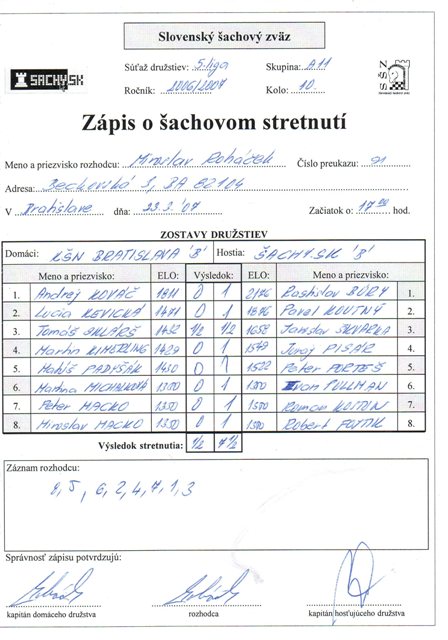 Slovenský šachový zväz
SACHY.SK
Súťaž družstiev: 5. liga Skupina: A11
Ročník: 2006/2007 Kolo: 10.
Zápis o šachovom stretnutí
Meno a priezvisko rozhodcu: Miroslav Roháček Číslo preukazu: 91
Adresa: 82104
V Bratislave dňa: 23.3.'07 Začiatok o: 17 00 hod.
ZOSTAVY DRUŽSTIEV
Domáci: KŠN BRATISLAVA 'B' Hostia: ŠACHY.SK 'B'
Meno a priezvisko: ELO: Výsledok: ELO: Meno a priezvisko:
1. Andrej KOVÁČ 1811 0 1 2176 Rastislav BÚRY 1.
2. Lucia KEVICKÁ 1471 0 1 1876 Pavol KOUTNÝ 2.
3. Tomáš 1432 1/2 1/2 1658 SKVARKA 3.
4. Martin KIMERLING 1429 0 1 1549 Juraj PISÁR 4.
5. PADYŠÁK 1430 0 1 1522 Peter 5.
6. Martina 1350 0 1 1350 Ivan PULLMAN 6.
7. Peter MACKO 1350 0 1 1350 Roman 7.
8. Miroslav MACKO 1350 0 1 1350 Robert 8.
Výsledok stretnutia: 1/2 7 1/2
Záznam rozhodcu:
8, 5, 6, 2, 4, 7, 1, 3
Správnosť zápisu potvrdzujú:
kapitán domáceho družstva rozhodca kapitán hosťujúceho družstva